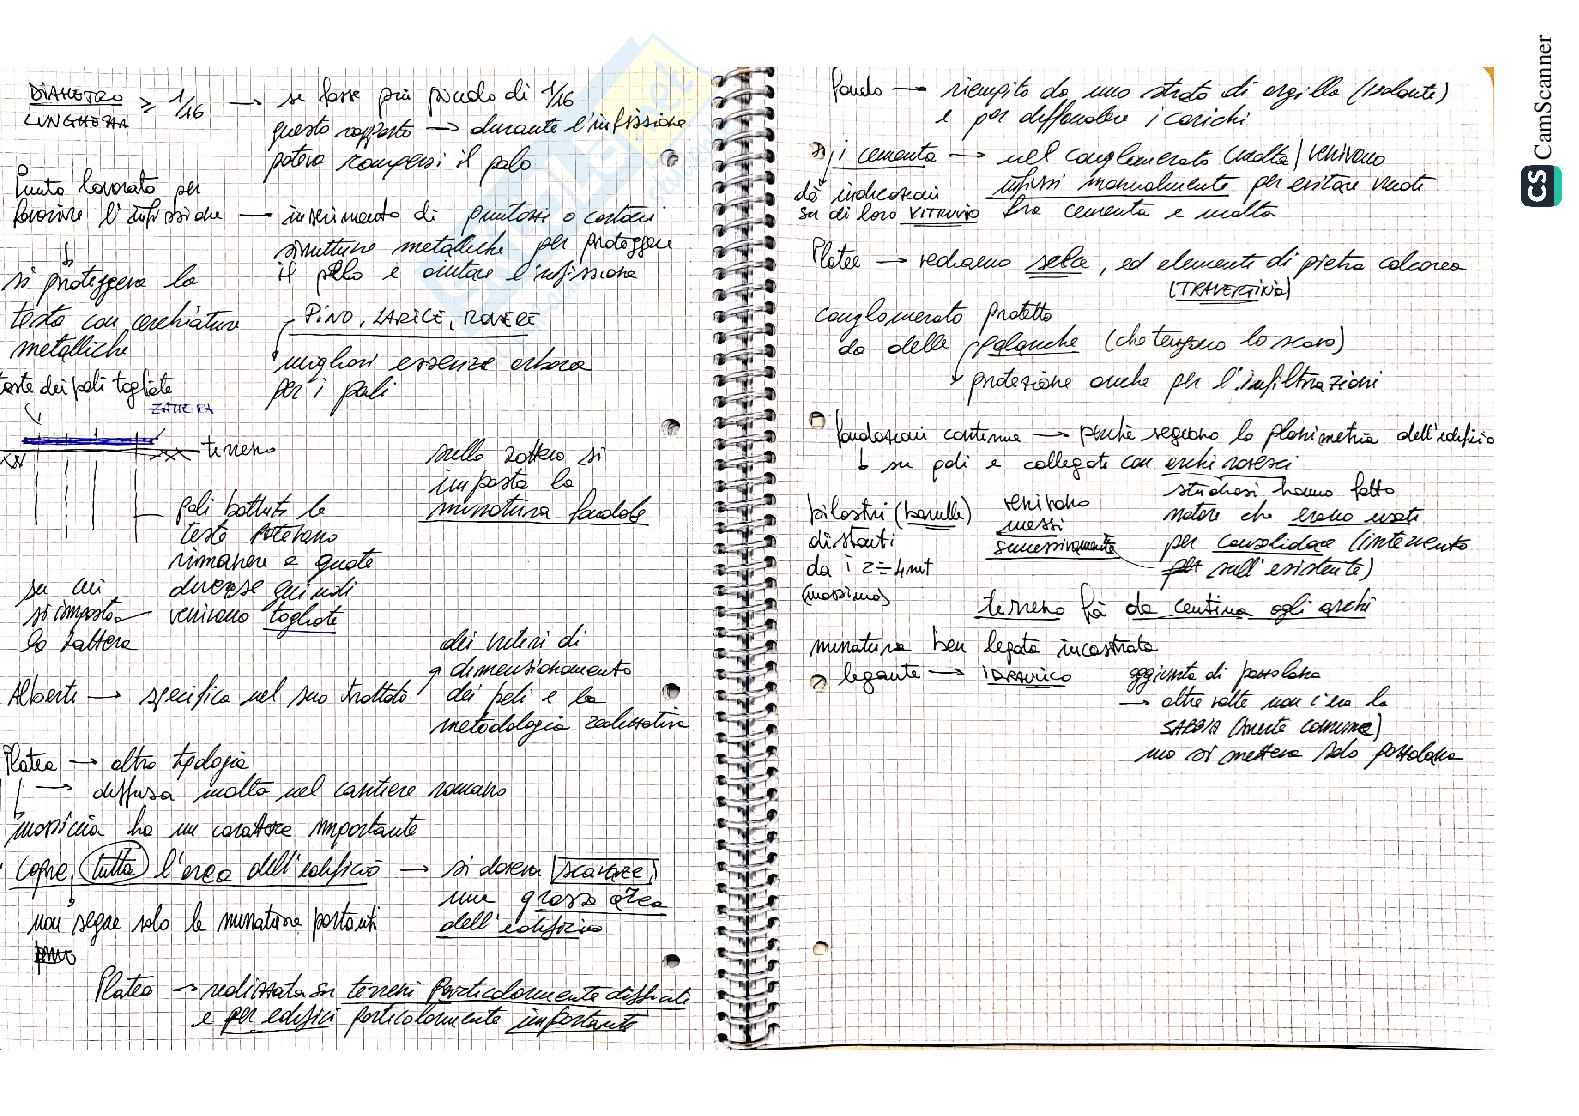 DIAMETRO
LUNGHEZZA ≥ 1/46 → se fosse più piccolo di 1/46
questo rapporto → durante l'infissione
poteva rompersi il palo
Punta lavorata per
favorire l'infissione → inserimento di puntazze o
strutture metalliche per proteggere
il palo e aiutare l'infissione
si proteggeva la
testa con cerchiature
metalliche
PINO, LARICE, ROVERE
migliori essenze arboree
per i pali
teste dei pali tagliate
ZATTERA
terreno
sulla zattera si
imposta la
muratura fondale
pali battuti le
teste potevano
rimanere a quote
diverse quindi
venivano tagliate
su cui
si imposta
la zattera
Alberti → specifica nel suo trattato
dei criteri di
dimensionamento
dei pali e la
metodologia realizzativa
Platea → altra tipologia
→ diffusa molto nel cantiere romano
massiccia ha un carattere importante
Copre tutta l'area dell'edificio → si doveva scavare
una grossa area
dell'edificio
non segue solo le murature portanti
Platea → realizzata su terreni particolarmente difficili
e per edifici particolarmente importanti
fondo → riempito da uno strato di argilla (isolante)
e per diffondere i carichi
i cementa → nel conglomerato (malta) venivano
infissi manualmente per evitare vuoti
fra cementa e malta
dà indicazioni
su di loro VITRUVIO
Platee → vediamo selce, ed elementi di pietra calcarea
(TRAVERTINO)
conglomerato protetto
da delle palanche (che tengono lo scavo)
protezione anche per l'infiltrazioni
fondazioni continue → perché seguono la planimetria dell'edificio
↳ su pali e collegate con archi rovesci
pilastri
distanti
da i 2÷4mt
(massimo)
venivano
messi
successivamente
studiosi hanno fatto
notare che erano usate
per consolidare (intervento
sull'esistente)
terreno fa da centina agli archi
muratura ben legata incastrata
legante → IDRAULICO
aggiunta di pozzolana
→ altre volte non c'era la
SABBIA
ma si metteva solo pozzolana
CS CamScanner